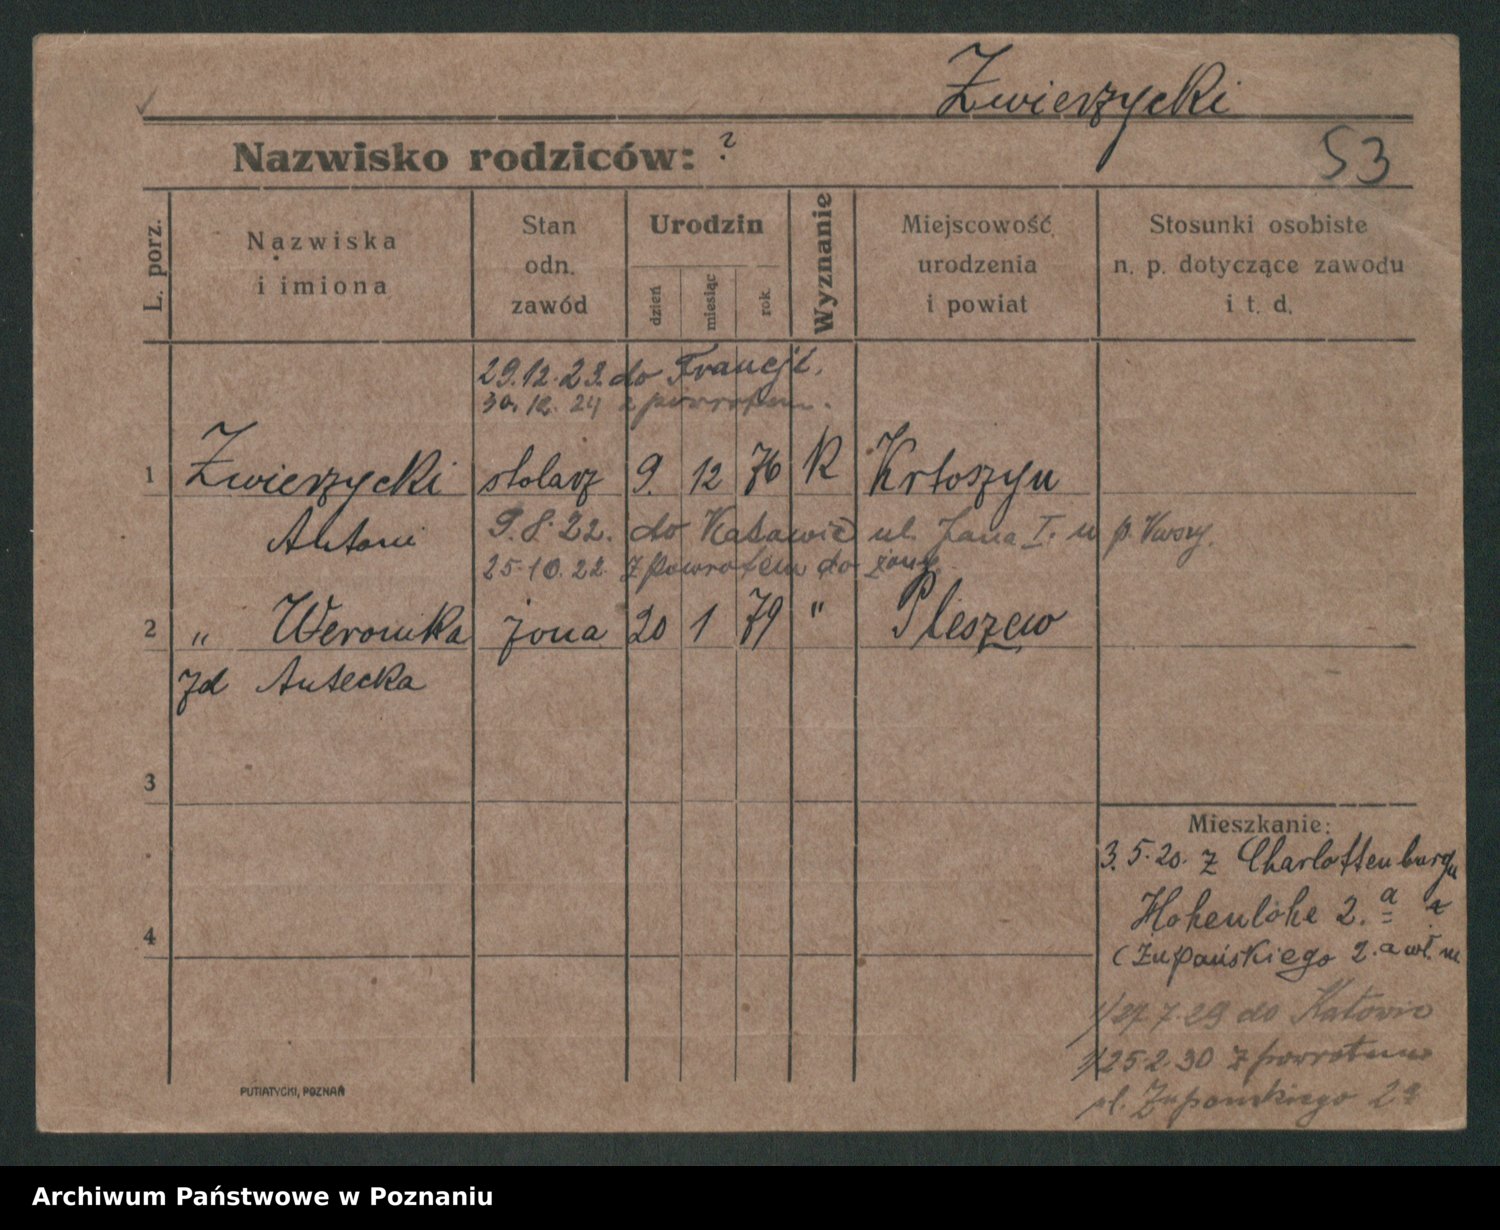 Zwierzycki
53
Nazwisko rodziców: ?
L. porz.
Nazwiska i imiona
Stan odn. zawód
Urodzin
dzień
miesiąc
rok.
Wyznanie
Miejscowość urodzenia i powiat
Stosunki osobiste n. p. dotyczące zawodu i t. d.
29.12.23. do Francji.
30.12.24 z powrotem.
1 Zwierzycki stolarz 9. 12 76 K Krtoszyn
Antoni 9.8.22. do Katowic ul. Jana I. u p.
25.10.22 z powrotem do żony
2 " Weronika żona 20 1 79 " Pleszew
zd Antecka
3
Mieszkanie:
3.5.20. z Charlottenburgu
Hohenlohe 2.a
4
(Żupańskiego 2.a wł. m
1/27.7.29 do Katowic
1/25.2.30 z powrotem
ul. Żupańskiego 2a
PUTIATYCKI, POZNAŃ
Archiwum Państwowe w Poznaniu